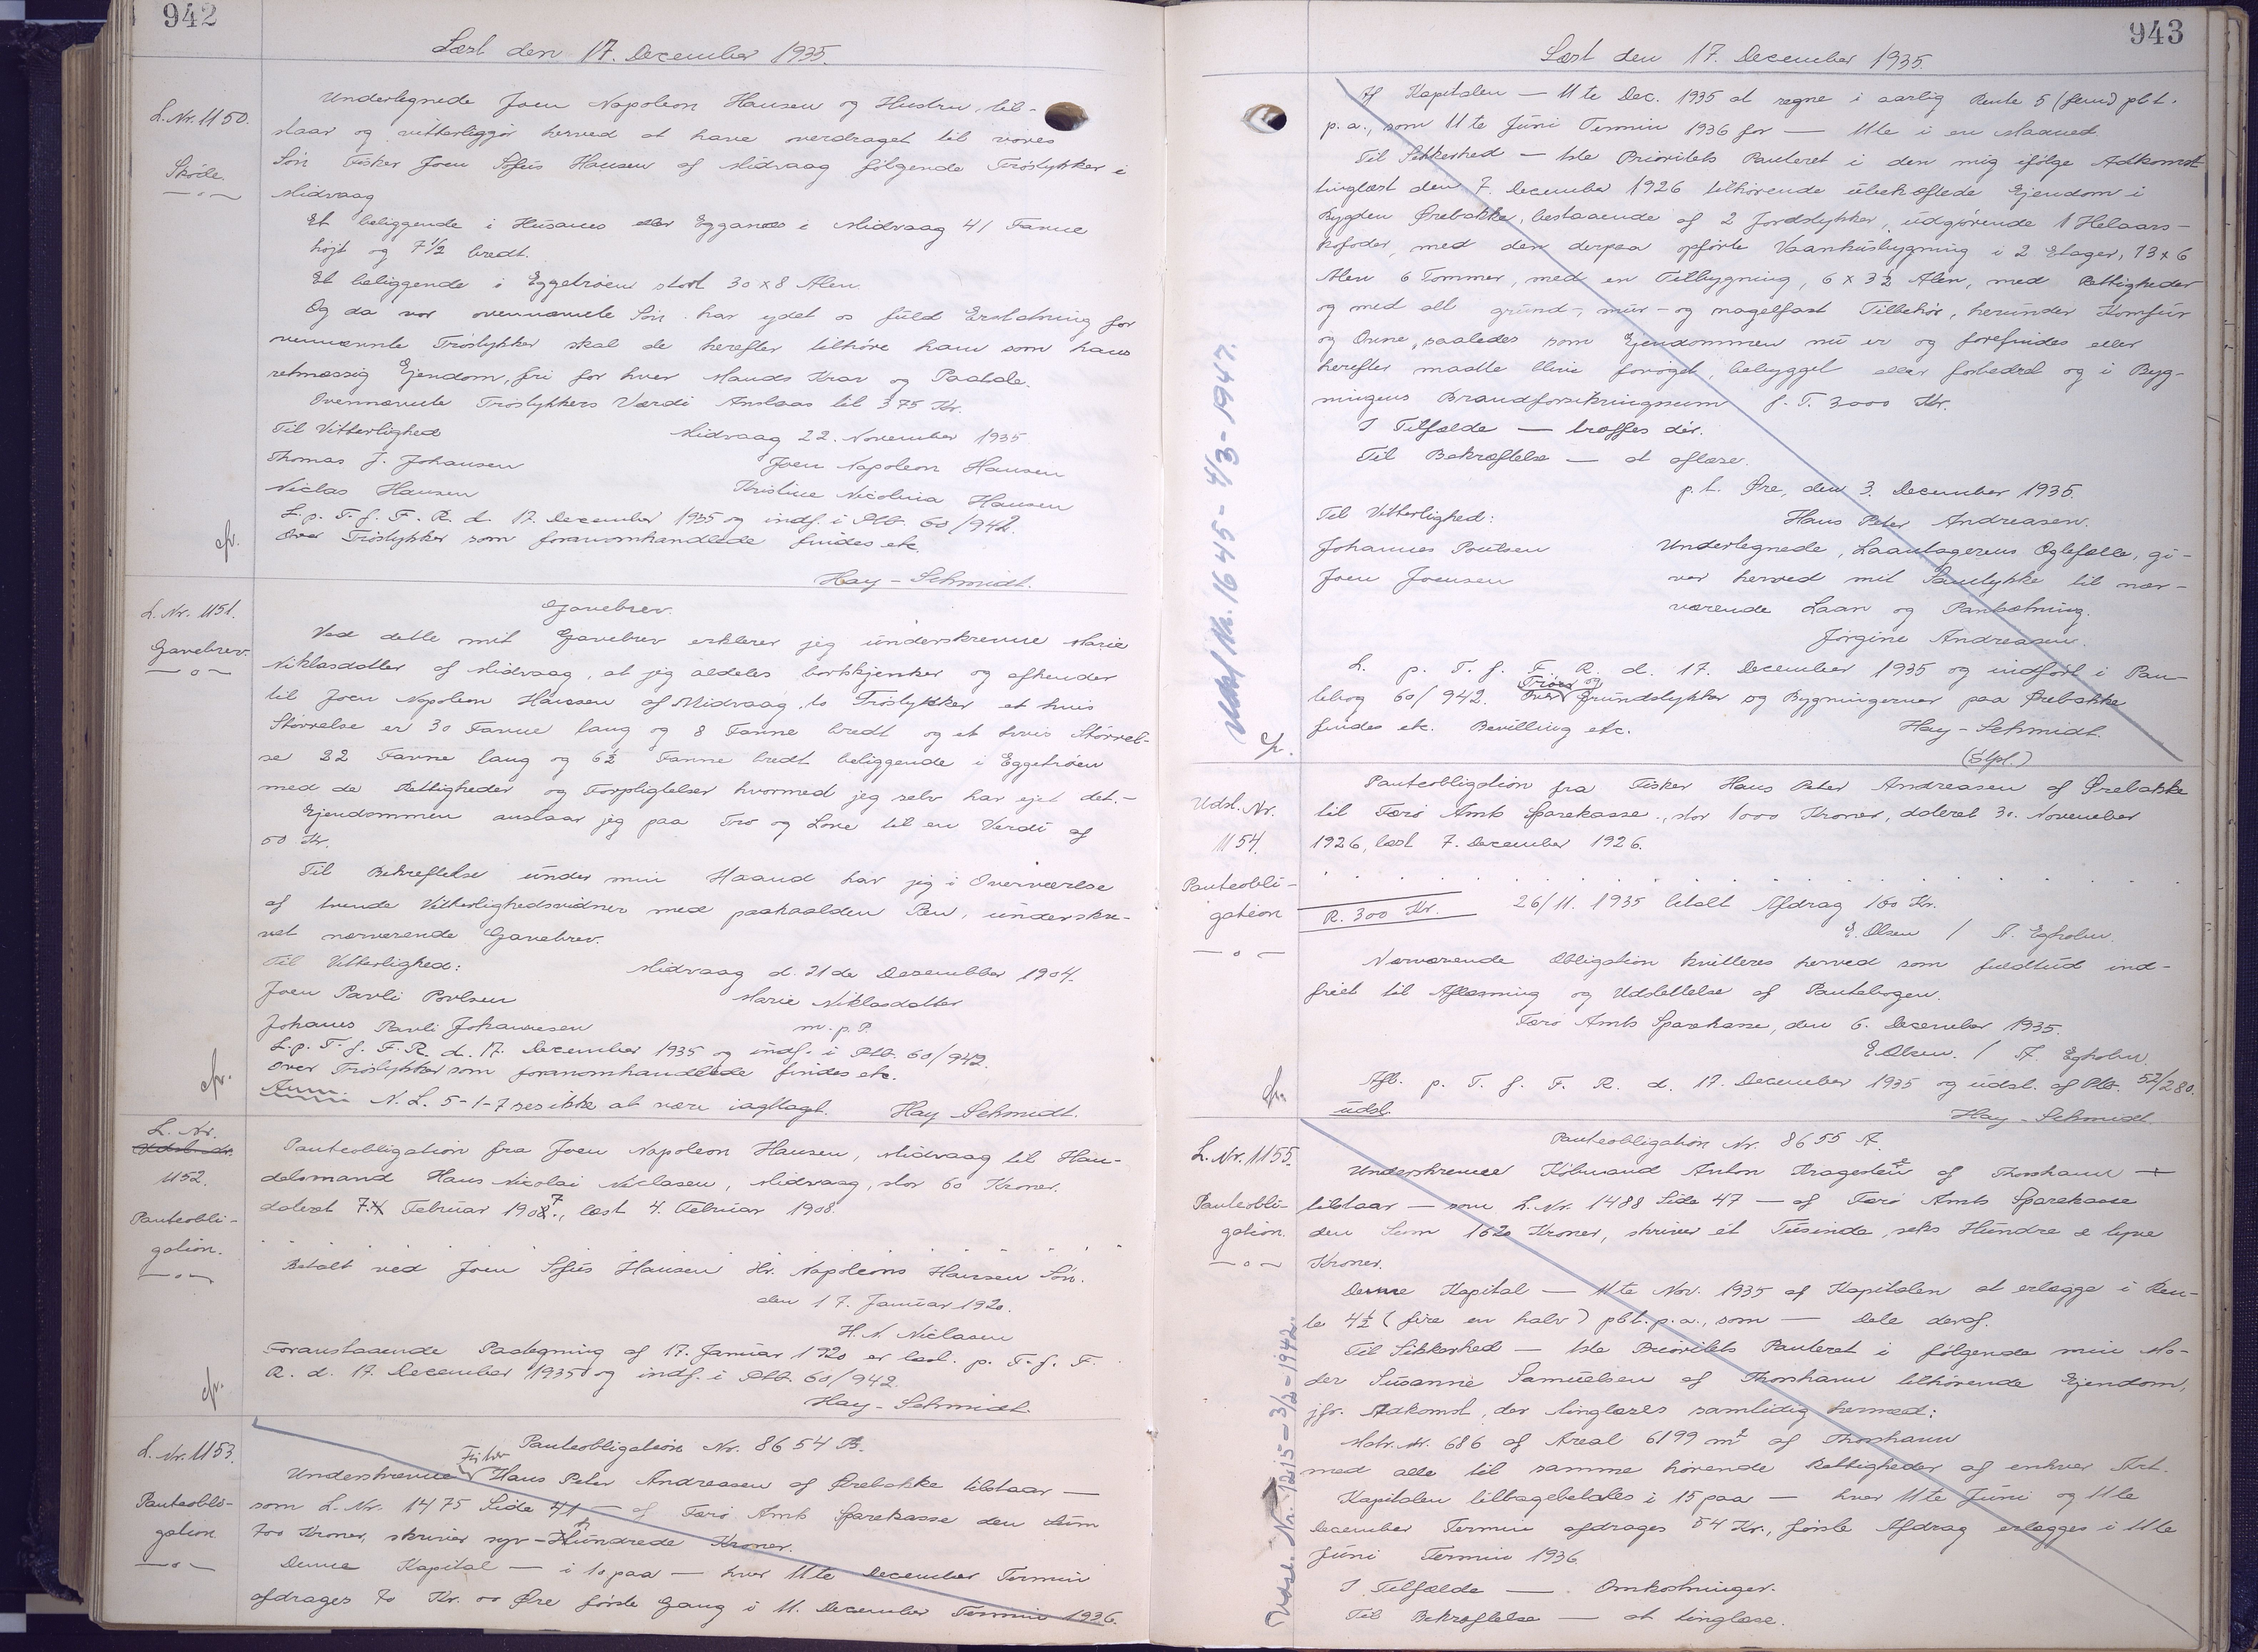 942
Læst den 17. December 1935.
L. Nr. 1150.
Skøde.
Undertegnede Joen Napoleon Hansen og Hustru, til-
staar og vitterliggjør herved at have overdraget til vores
Søn Fisker Joen Sofus Hansen af Midvaag følgende Trøstykker i
Midvaag
Et beliggende i Húsanes eller Egganæs i Midvaag 41 Favne
højt og 7 1/2 bredt.
Et beliggende i Eggetrøen stort 30 x 8 Alen.
Og da vor ovennævnte Søn har ydet os fuld Erstatning for
ovennævnte Trøstykker skal de herefter tilhøre ham som hans
retmæssig Ejendom, fri for hver Mands Krav og Paatale.
Ovennævnte Trøstykkers Værdi Anslaas til 375 Kr.
Til Vitterlighed Midvaag 22. November 1935
Thomas J. Johansen Joen Napoleon Hansen
Niclas Hansen Kristine Nicolina Hansen
L. p. T. f. F. R. d. 17. December 1935 og indf. i Ptb. 60/942.
Over Trøstykker som foranomhandlede findes etc.
cfr.
Hay-Schmidt.
L. Nr. 1151.
Gavebrev.
Gavebrev.
Ved dette mit Gavebrev erklerer jeg underskrevne Marie
Niklasdatter af Midvaag, at jeg aldeles bortskjenker og afhender
til Joen Napoleon Hansen af Midvaag to Trøstykker et hvis
Størrelse er 30 Favne lang og 8 Favne bredt og et hvis Størrel-
se 22 Favne lang og 6 1/2 Favne bredt beliggende i Eggetrøen
med de Rettigheder og Forpligtelser hvormed jeg selv har ejet det.-
Ejendommen anslaar jeg paa Tro og Love til en Verdi af
50 Kr.
Til Bekreftelse under min Haand har jeg i Overværelse
af tvende Vitterlighedsvidner med paahoalden Pen, underskre-
vet nærværende Gavebrev.
Til Vitterlighed: Midvaag d. 21de Desembber 1904.
Joen Pavli Povlsen Marie Niklasdatter
Johanes Pavli Johannesen m. p. P.
L. p. T. f. F. R. d. 17. December 1935 og indf. i Ptb. 60/942.
Over Trøstykker som foranomhandlede findes etc.
cfr.
Anm. N. L. 5-1-7 ses ikke at være iagttagt. Hay Schmidt.
L. Nr.
1152.
Panteobli-
gation.
Panteobligation fra Joen Napoleon Hansen, Midvaag til Han-
delsmand Hans Nicolai Niclasen, Midvaag, stor 60 Kroner.
dateret 7. Februar 1907., læst 4. Februar 1908.
Betalt ved Joen Sofus Hansen Hr. Napoleons Hansen Søn.
den 17. Januar 1920.
H. N. Niclasen
Foranstaaende Paategning af 17. Januar 1920 er læst. p. T. f. F.
R. d. 17. December 1935 og indf. i Ptb. 60/942.
cfr.
Hay-Schmidt.
L. Nr. 1153.
Panteobli-
gation.
Panteobligation Nr. 8654 B.
Underskrevne Fisker Hans Peter Andreasen af Ørebakke tilstaar —
som L. Nr. 1475 Side 41 — af Færø Amts Sparekasse den Sum
700 Kroner, skriver syv-Hundrede Kroner.
Denne Kapital — i 10 paa — hver 11te December Termin
afdrages 70 Kr. 00 Øre første Gang i 11. December Termin 1936.
943
Læst den 17. December 1935.
Af Kapitalen — 11te Dec. 1935 at regne i aarlig Rente 5 (fem) pCt.
p. a., som 11te Júni Termin 1936 for — 11te i en Maaned.
Til Sikkerhed — 1ste Prioritets Panteret i den mig ifølge Adkomst
tinglæst den 7. December 1926 tilhørende ubehæftede Ejendom i
Bygden Ørebakke, bestaaende af 2 Jordstykker, udgørende 1 Helaars-
kofoder, med den derpaa opførte Vaanhusbygning i 2 Etager, 13 x 6
Alen 6 Tommer, med en Tilbygning, 6 x 3 1/2 Alen, med Rettigheder
og med alt grund-, mur- og nagelfast Tilbehør, herunder Komfur
og Ovne, saaledes som Ejendommen nu er og forefindes eller
herefter maatte blive forøget, bebygget eller forbedred og i Byg-
ningens Brandforsikringssum f. T. 3000 Kr.
I Tilfælde — træffes dér.
Til Bekræftelse — at aflæse.
p. t. Øre, den 3. December 1935.
Til Vitterlighed: Hans Peter Andreasen.
Johannes Poulsen Undertegnede, Laantagerens Ægtefælle, gi-
Joen Joensen ver herved mit Samtykke til nær-
værende Laan og Pantsætning.
Jørgine Andreasen.
L. p. T. f. F. R. d. 17. December 1935 og indført i Pan-
tebog 60/942. Over Trøer og Grundstykker og Bygningerner paa Ørebakke
findes etc. Bevilling etc. Hay-Schmidt.
cfr.
(Stpl.)
Udsl. Nr. 1645 - 4/3-1947.
Udsl. Nr.
1154.
Panteobli-
gation
Panteobligation fra Fisker Hans Peter Andreasen af Ørebakke
til Færø Amts Sparekasse., stor 1000 Kroner, dateret 30. November
1926, læst 7. December 1926.
R. 300 Kr. 26/11. 1935 betalt Afdrag 100 Kr.
E. Olsen / A. Egholm.
Nærværende Obligation kvitteres herved som fuldtud ind-
friet til Aflæsning og Udslettelse af Pantebogen.
Færø Amts Sparekasse, den 6. December 1935.
E. Olsen. / A. Egholm
Afl. p. T. f. F. R. d. 17. December 1935 og udsl. af Ptb. 52/280.
cfr.
udsl. Hay-Schmidt.
L. Nr. 1155.
Panteobli-
gation.
Panteobligation Nr. 8655 A.
Underskrevne Købmand Anton Dragesteen af Thorshavn —
tilstaar — som L. Nr. 1488 Side 47 — af Færø Amts Sparekasse
den Sum 1620 Kroner, skriver ét Tusinde, seks Hundre & tyve
Kroner.
Denne Kapital — 11te Nov. 1935 af Kapitalen at erlægge i Ren-
te 4 1/2 (fire en halv) pCt. p. a., som — Dele deraf.
Til Sikkerhed — 1ste Prioritets Panteret i følgende min Mo-
der Susanne Samuelsen af Thorshavn tilhørende Ejendom,
jfr. Adkomst, der tinglæses samtidig hermed:
Matr. Nr. 686 af Areal 6199 m² af Thorshavn
med alle til samme hørende Rettigheder af enhver Art.
Kapitalen tilbagebetales i 15 paa — hver 11te Juni og 11te
December Termin afdrages 54 Kr., første Afdrag erlægges i 11te
Juni Termin 1936.
I Tilfælde — Omkostninger.
Til Bekræftelse — at tinglæse.
Udsl. Nr. 1215 - 3/2-1942.